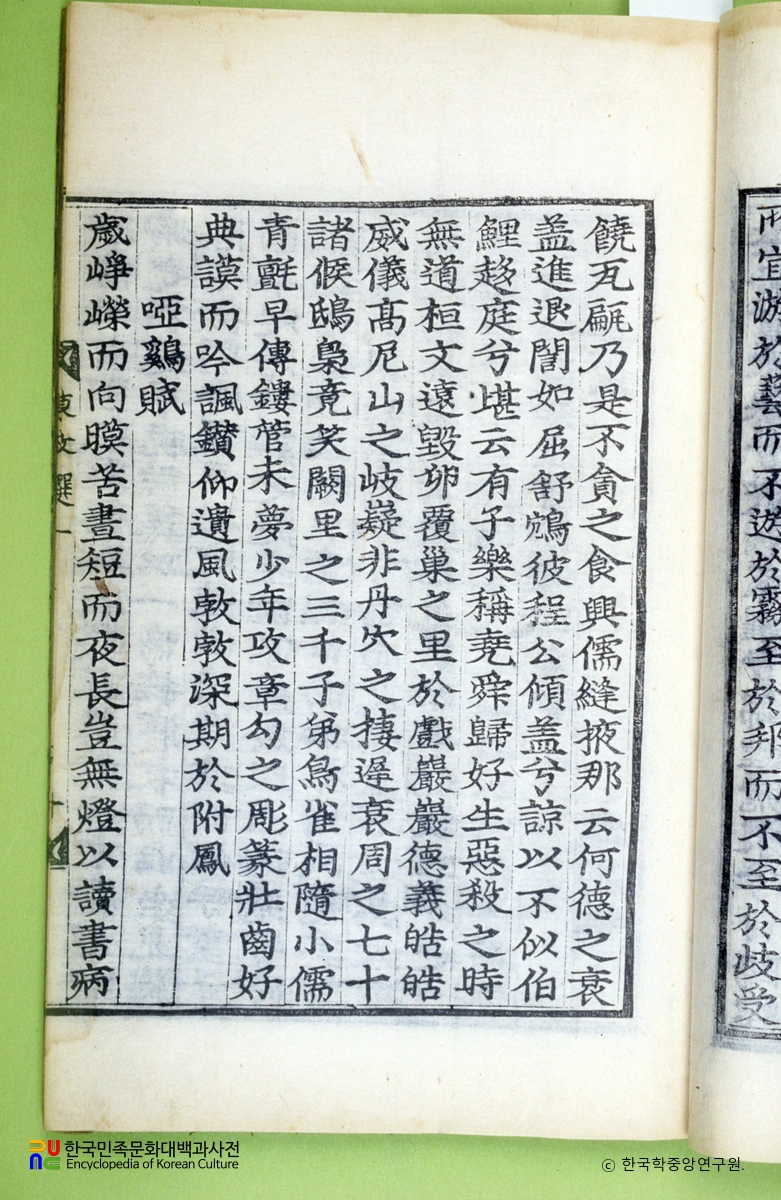 而宜游於藝而不遊於霧至於邦而不至於岐受
饒瓦甂乃是不貪之食興儒縫掖那云何德之衰
盖進退誾如屈舒鴳彼程公傾盖兮諒以不似伯
鯉趍庭兮堪云有子樂稱堯舜歸好生惡殺之時
無道桓文遠毀卵覆巢之里於戲巖巖德義皓皓
威儀髙尼山之岐嶷非丹穴之捿遲衰周之七十
諸侯鴟梟竟笑闕里之三千子弟鳥雀相隨小儒
青氊早傳鏤管未夢少年攻章勾之彫篆壯齒好
典謨而吟諷鑚仰遺風孜孜深期於附鳳
啞鷄賦
歲崢嶸而向暯苦晝短而夜長豈無燈以讀書病
東文選一
한국민족문화대백과사전
Encyclopedia of Korean Culture
ⓒ 한국학중앙연구원.